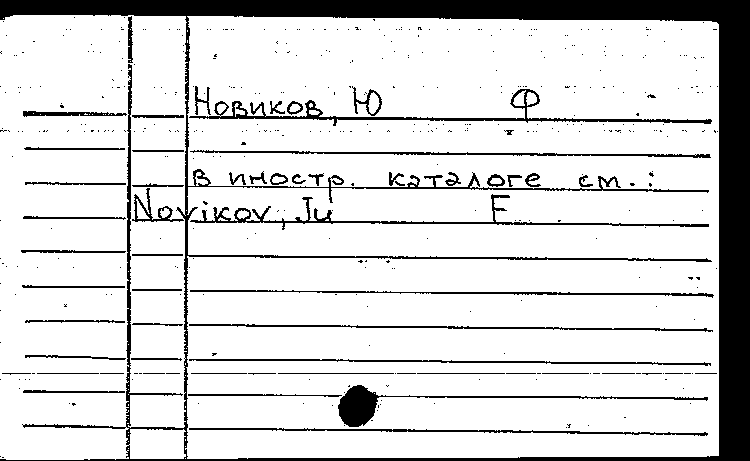 Новиков, Ю Ф
в иностр. каталоге см.:
Novikov, Ju F